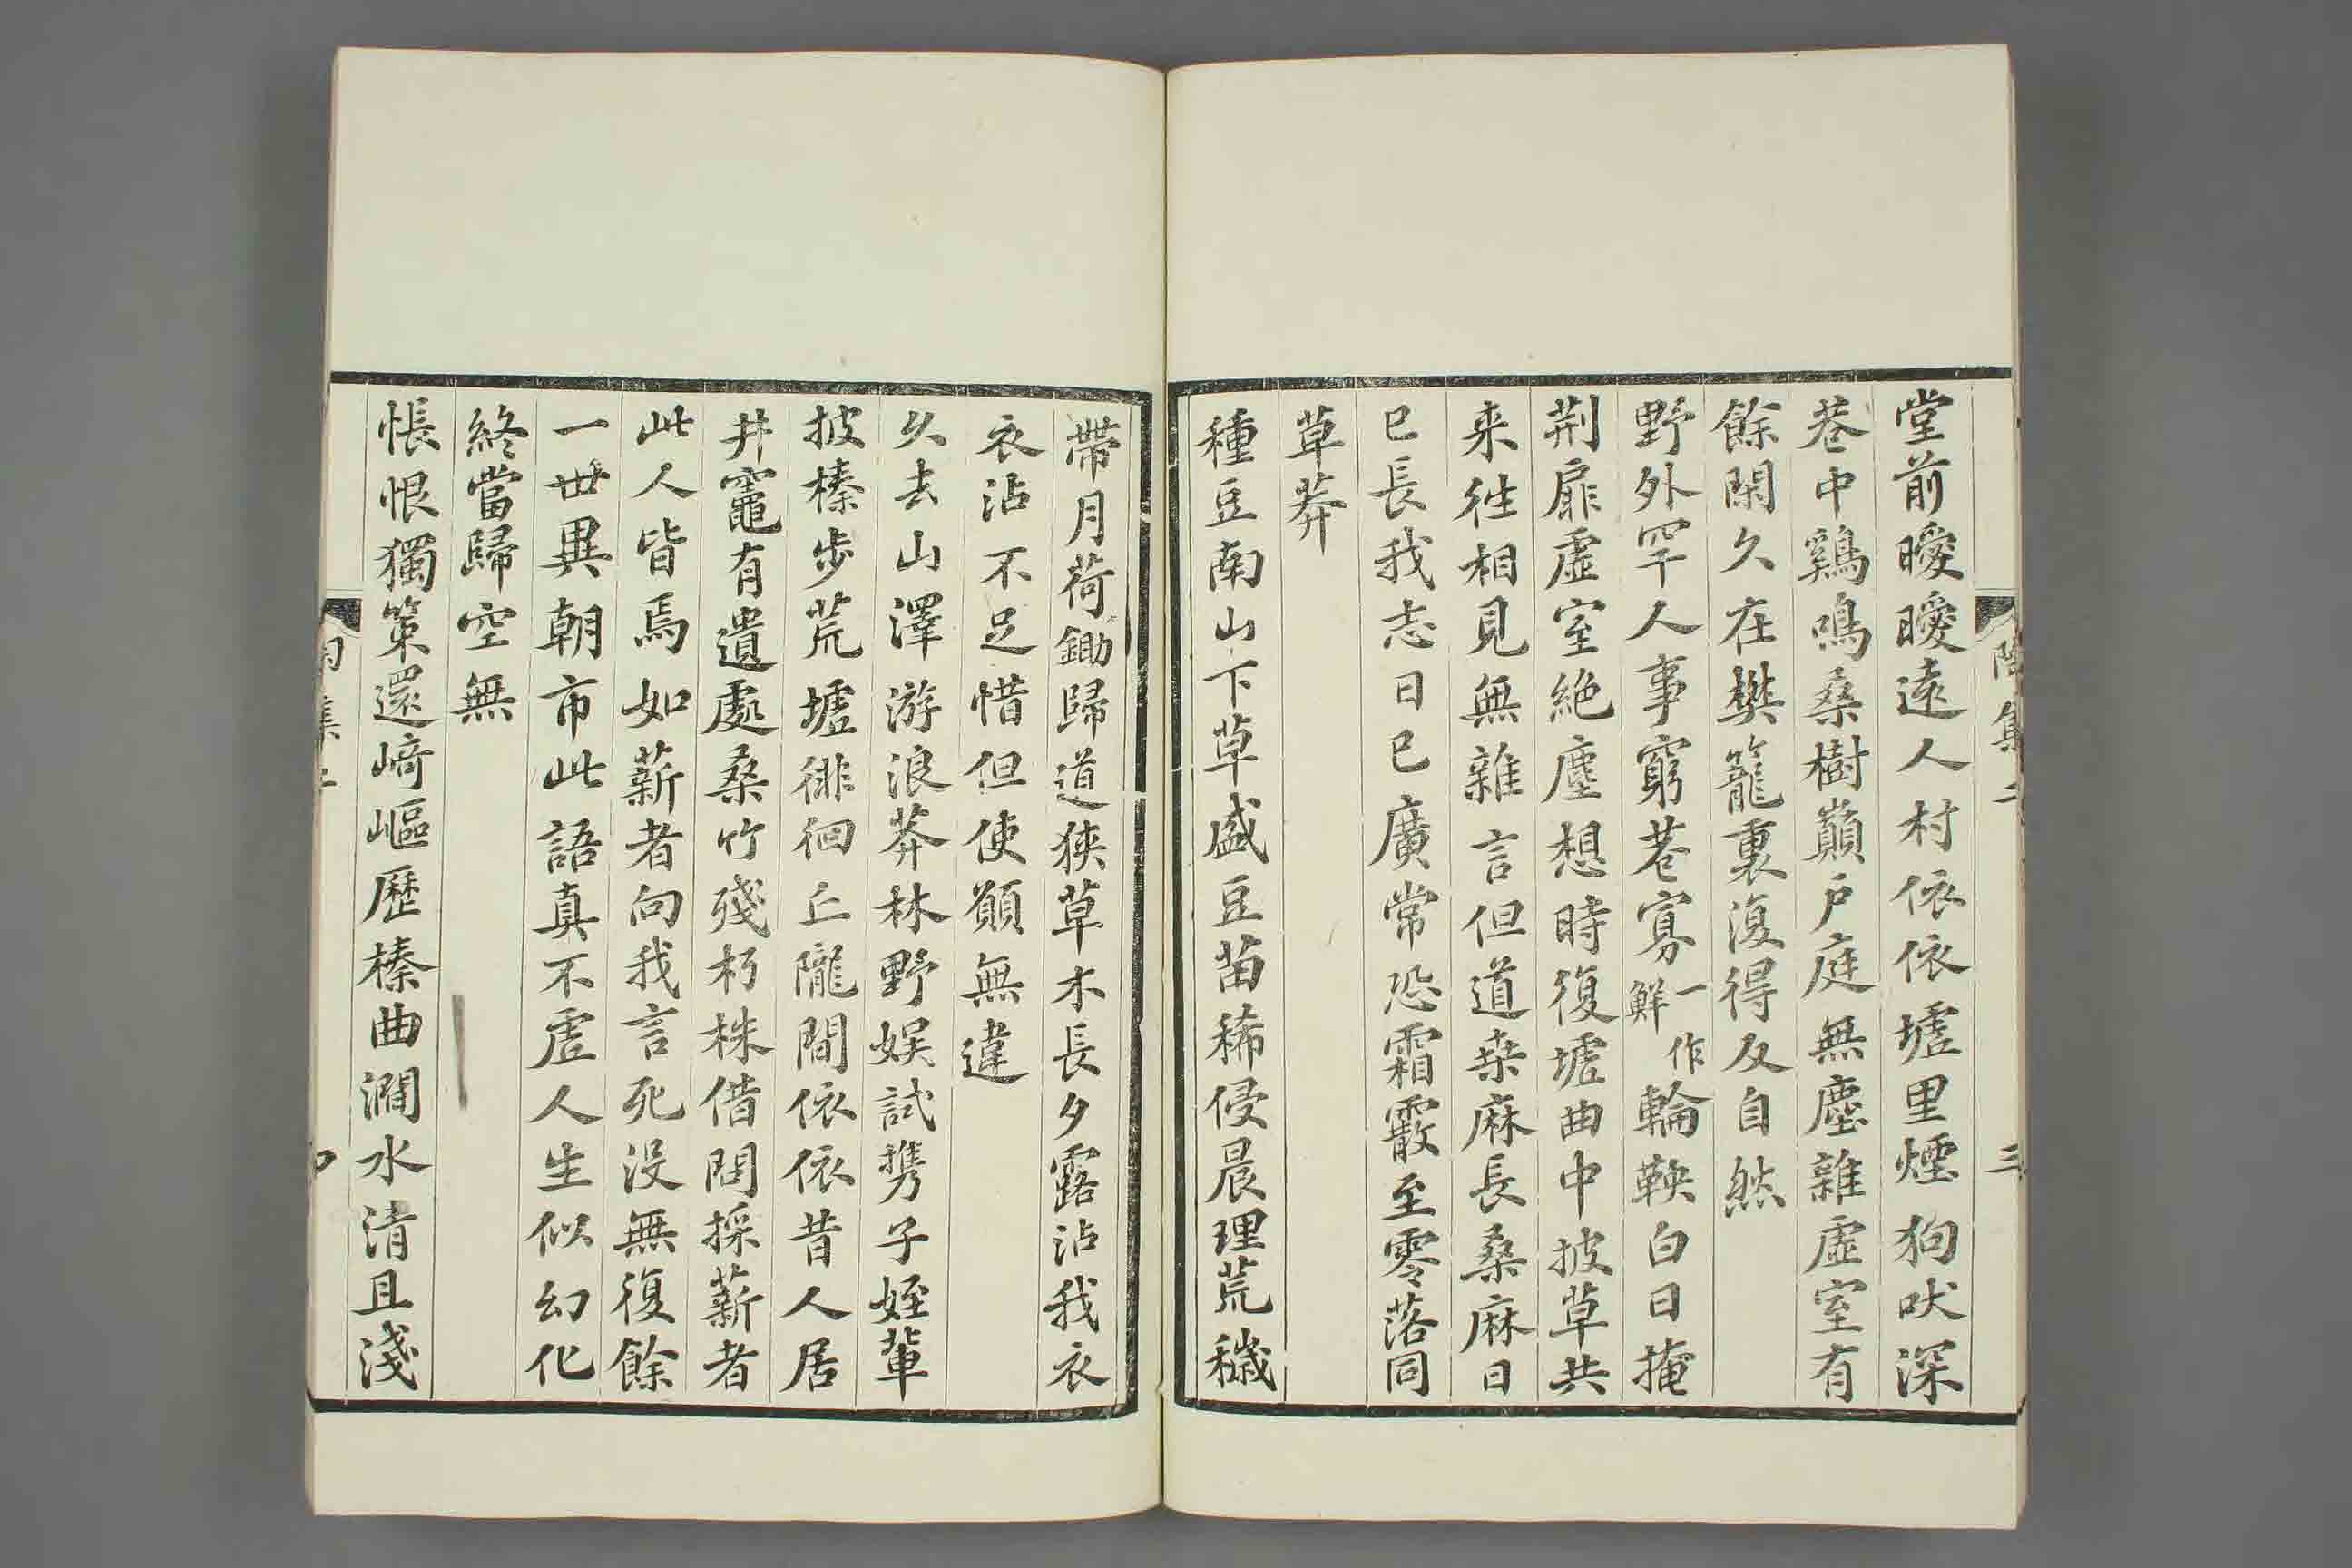 堂前曖曖遠人村依依墟里煙狗吠深
巷中鷄鳴桑樹巔戶庭無塵雜虛室有
餘閑久在樊籠裏復得反自然
野外罕人事窮巷寡一作鮮輪鞅白日掩
荆扉虛室絕塵想時復墟曲中披草共
来往相見無雜言但道桒麻長桑麻日
已長我志日已廣常恐霜霰至零落同
草莽
種豆南山下草盛豆苗稀侵晨理荒穢
帶月荷鋤歸道狹草木長夕露沾我衣
衣沾不足惜但使願無違
久去山澤游浪莽林野娛試携子姪輩
披榛步荒墟徘徊丘隴間依依昔人居
井竈有遺處桑竹殘朽株借問採薪者
此人皆焉如薪者向我言死没無復餘
一世異朝市此語真不虛人生似幻化
終當歸空無
悵恨獨策還崎嶇歷榛曲澗水清且淺